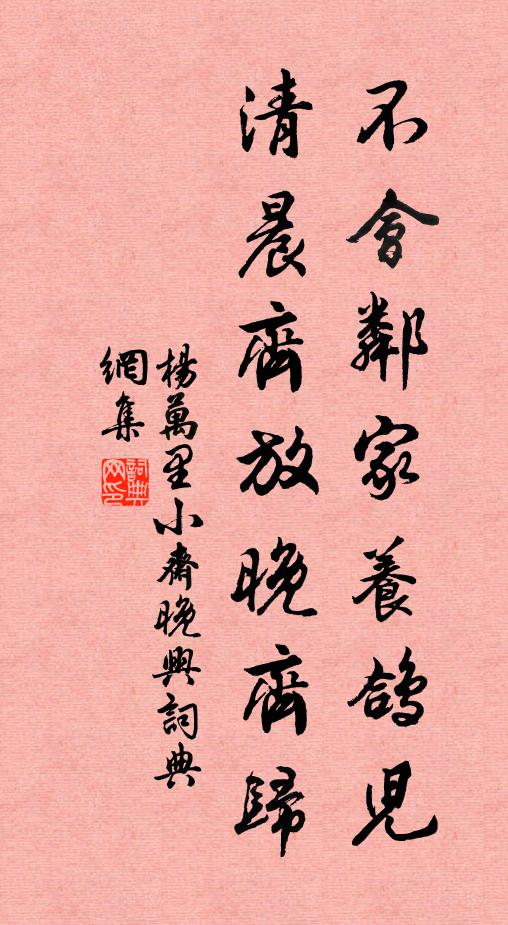 不會鄰家養鴿兒
清晨齊放晚齊歸
楊萬里小齋晚興詞典
網集
詞典网印